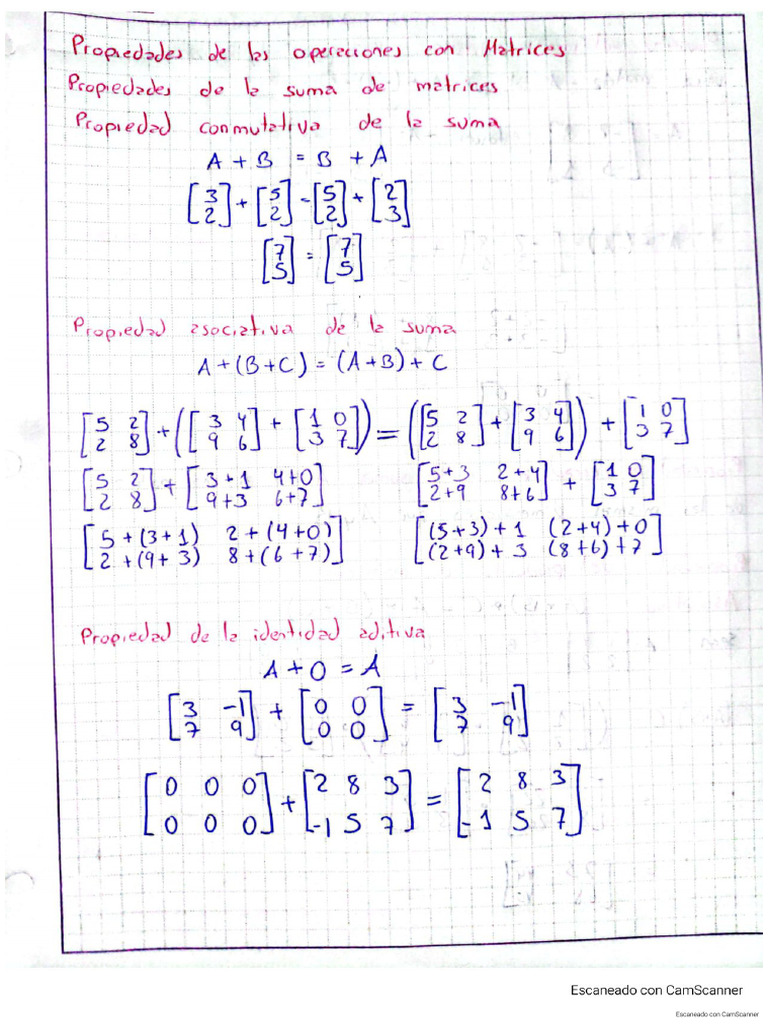 Propiedades de las operaciones con Matrices
Propiedades de la suma de matrices
Propiedad conmutativa de la suma
A + B = B + A
[3 2] + [5 2] = [5 2] + [2 3]
[7 5] = [7 5]
Propiedad asociativa de la suma
A + (B + C) = (A + B) + C
[5 2; 2 8] + ([3 4; 9 6] + [1 0; 3 7]) = ([5 2; 2 8] + [3 4; 9 6]) + [1 0; 3 7]
[5 2; 2 8] + [3+1 4+0; 9+3 6+7] [5+3 2+4; 2+9 8+6] + [1 0; 3 7]
[5+(3+1) 2+(4+0); 2+(9+3) 8+(6+7)] [(5+3)+1 (2+4)+0; (2+9)+3 (8+6)+7]
Propiedad de la identidad aditiva
A + O = A
[3 -1; 7 9] + [0 0; 0 0] = [3 -1; 7 9]
[0 0 0; 0 0 0] + [2 8 3; -1 5 7] = [2 8 3; -1 5 7]
Escaneado con CamScanner
Escaneado con CamScanner